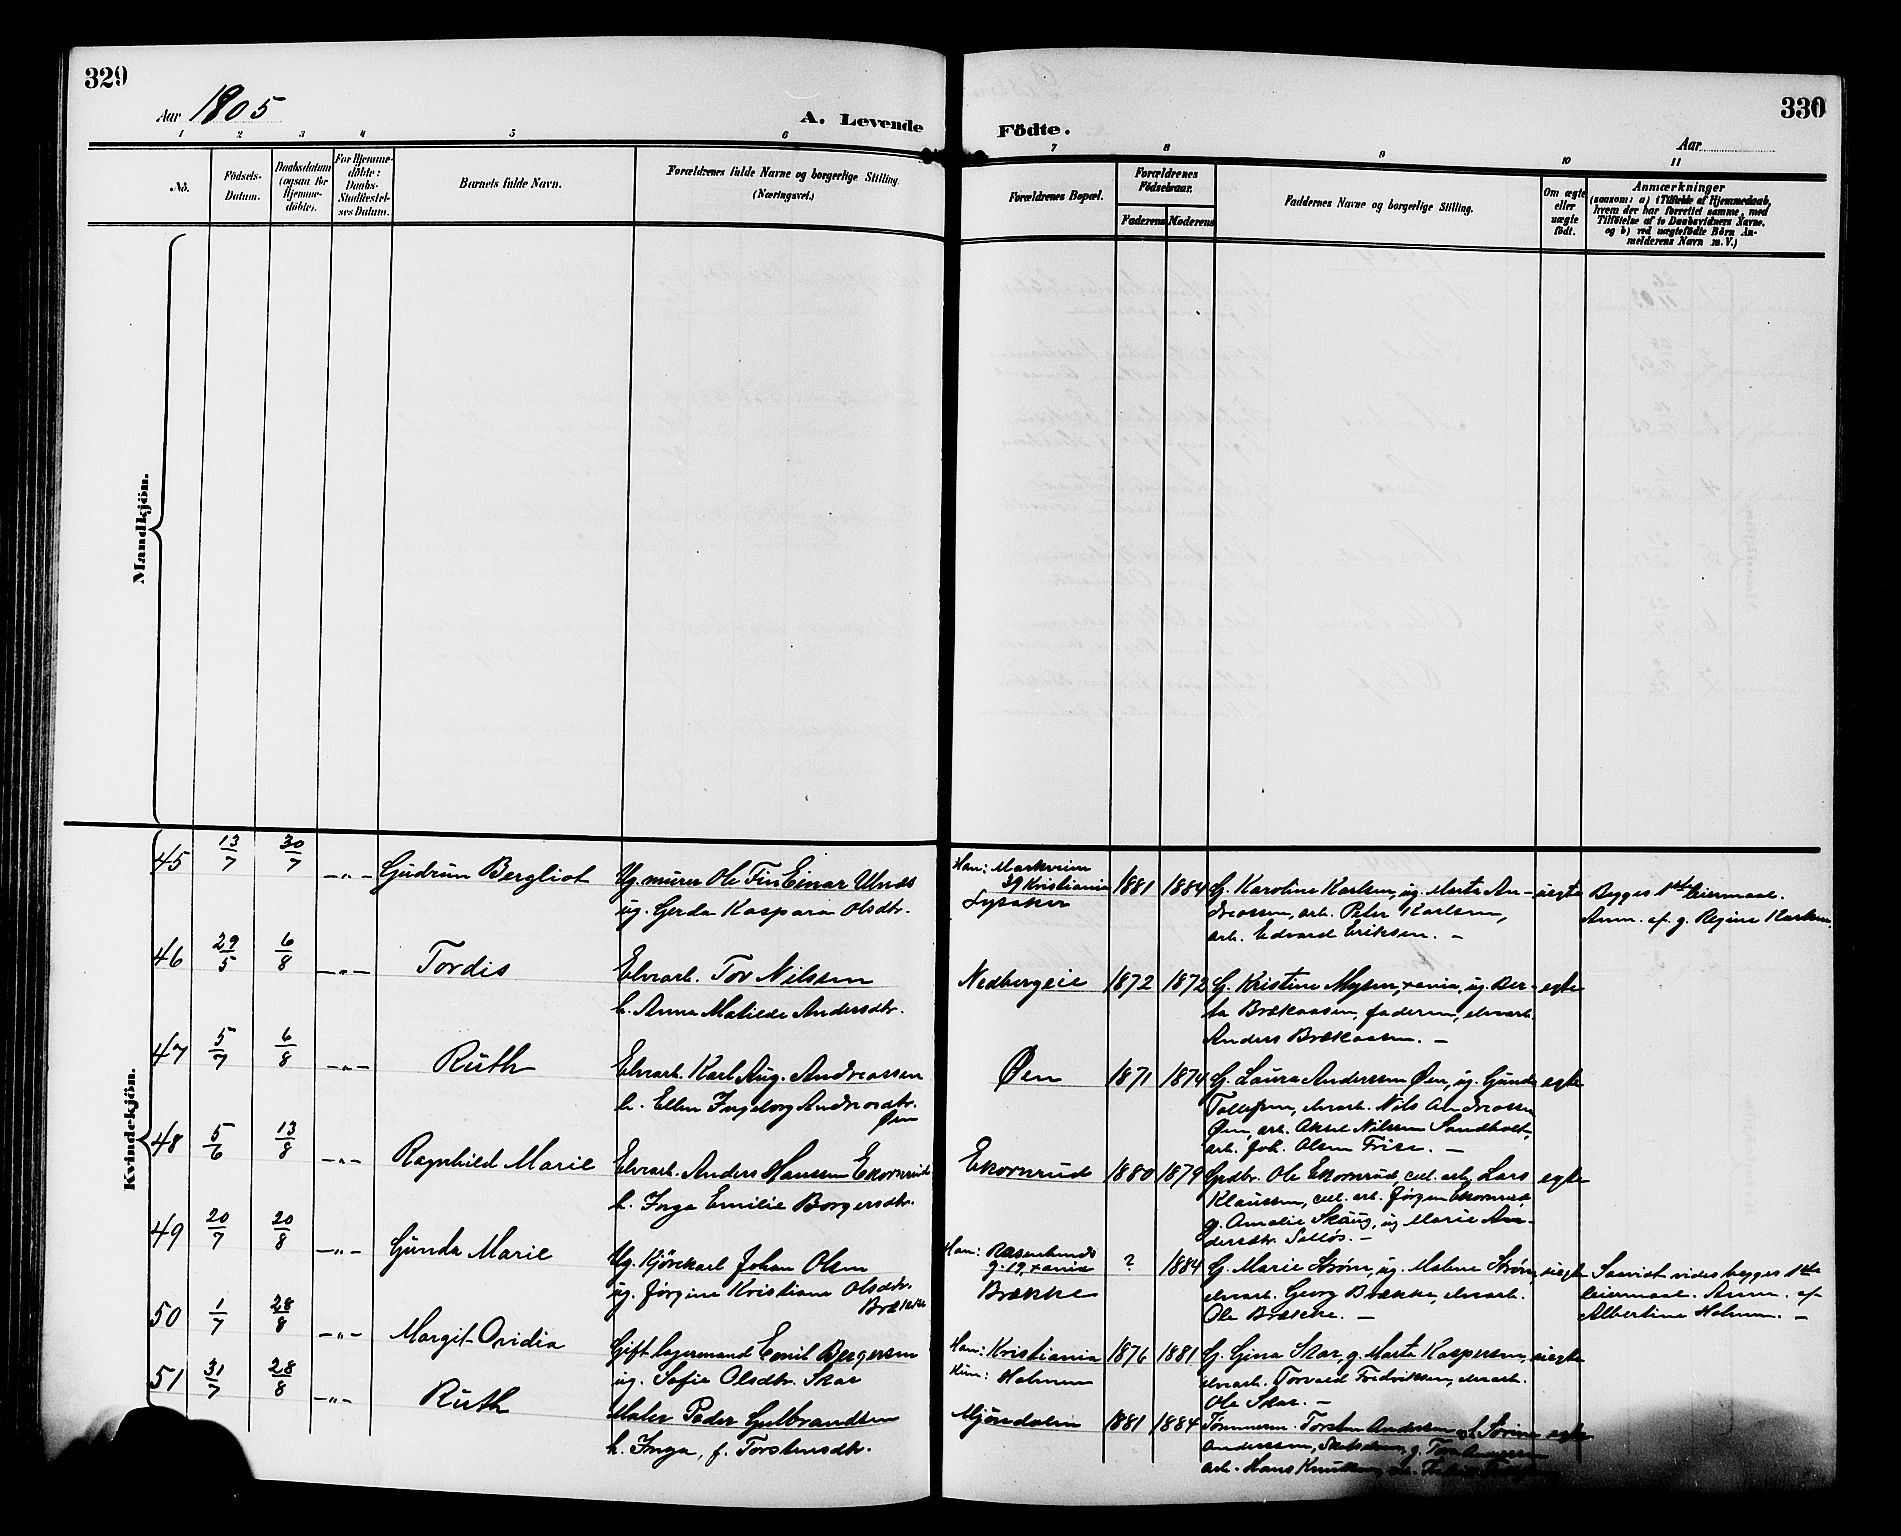 329
330
Aar 1905
A. Levende
Födte.
Aar
1
2
3
4
5
6
7
8
9
10
11
No.
Födsels-
Datum.
Daabsdatum
(ogsaa for
Hjemme-
döbte).
For Hjemme-
döbte:
Daabs-
Stadfæstel-
ses Datum.
Barnets fulde Navn.
Forældrenes fulde Navne og borgerlige Stilling.
(Næringsvei.)
Forældrenes Bopæl.
Forældrenes
Födselsaar.
Faderens
Moderens
Faddernes Navne og borgerlige Stilling.
Om ægte
eller
uægte
födt.
Anmærkninger
(saasom: a) i Tilfælde af Hjemmedaab,
hvem der har forrettet samme, med
Tilföielse af to Daabsvidners Navne,
og b) ved uægtefödte Börn An-
melderens Navn m. V.)
Mandkjön.
Kvindekjön.
45 13/7 30/7 -"- Gudrun Bergliot
Ug. murer Ole Fin Einar Ulnæs
ug. Gerda Kaspara Olsdtr.
Han: Markveien
39 Kristiania
Lysaker
1881 1884
G. Karoline Karlsen, ug. Marta An-
dreassen, arb. Peter Karlsen,
arb. Edvard Eriksen. –
uegte
Begges 1ste leiermaal.
Anm. af g. Regine Karlsen.
46 29/5 6/8 -"- Tordis
Elvearb. Tov Nilssen
h. Anna Matilde Andersdtr.
Nedbergeie
1872 1872
G. Kristine Mysen, xania, ug. Ber-
ta Brækaasen, faderen, elvearb.
Anders Brækaasen. –
egte
47 5/7 6/8 -"- Ruth
Elvearb. Karl Aug. Andreassen
h. Ellen Ingeborg Andreasdtr.
Øen
Øen
1871 1874
G. Laura Anderssen Øen, ug. Gunda
Tollefsen, elvearb. Nils Andreassen
Øen, arb. Aksel Nilssen Sandholt,
arb. Joh. Olsen Frise. –
egte
48 5/6 13/8 -"- Ragnhild Marie
Elvearb. Anders Hanssen Ekornrud
h. Inga Emilie Borgersdtr.
Ekornrud
1880 1879
Grdbr. Ole Ekornrud, cel. arb. Lars
Klaussen, cel. arb. Jørgen Ekornrud,
g. Amalie Skaug, ug. Marie An-
dersdtr. Solløs. –
egte
49 20/7 20/8 -"- Gunda Marie
Ug. Kjørekarl Johan Olsen
ug. Jørgine Kristiane Olsdtr.
Brække
Han: Rosenlunds
g. 19, xania
Brække
? 1884
G. Marie Strøm, ug. Malene Strøm,
elvearb. Georg Brække, elvearb.
Ole Brække. –
uegte
Saavidt vides begges 1ste
leiermaal. Anm. af
Albertine Holmen. –
50 1/7 28/8 -"- Margit Ovidia
Gift lagermand Emil Bergersen
ug. Sofie Olsdtr. Skar
Han: Kristiania
Hun: Holmen
1876 1881
G. Gina Skar, g. Marta Kaspersen,
elvearb. Torvald Fredriksen, elvearb.
Ole Skar. –
uegte
51 31/7 28/8 -"- Ruth
Maler Peder Gulbrandsen
h. Inga, f. Torstensdtr.
Mjøndalen
1881 1884
Tømmerm. Torsten Anderssen
Anderssen,
arb. Hans Knudsen,
egte